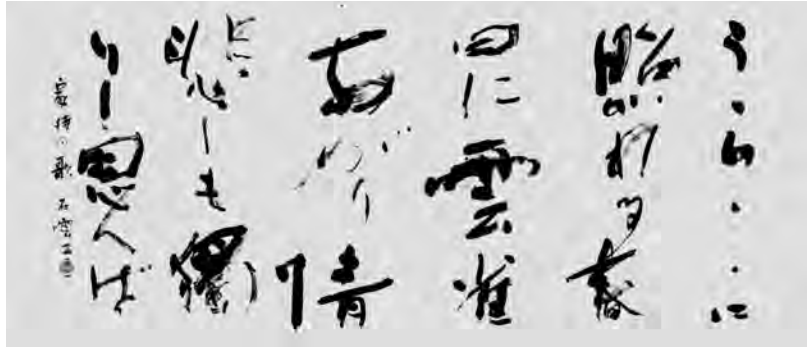 う、ら、、に
照れる春
日に雲雀
あがり情
悲しも獨
りし思へば
家持の歌 石雲